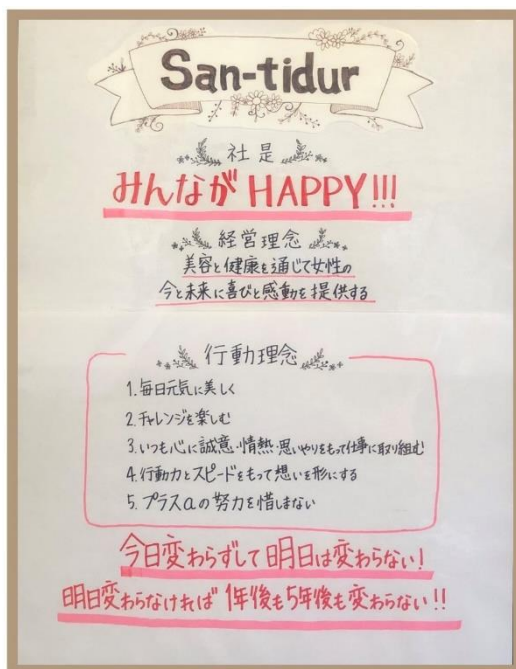 San-tidur
社是
みんなが HAPPY!!!
経営理念
美容と健康を通じて女性の
今と未来に喜びと感動を提供する
行動理念
1. 毎日元気に美しく
2. チャレンジを楽しむ
3. いつも心に誠意・情熱・思いやりをもって仕事に取り組む
4. 行動力とスピードをもって想いを形にする
5. プラスαの努力を惜しまない
今日変わらずして明日は変わらない!
明日変わらなければ 1年後も5年後も変わらない!!